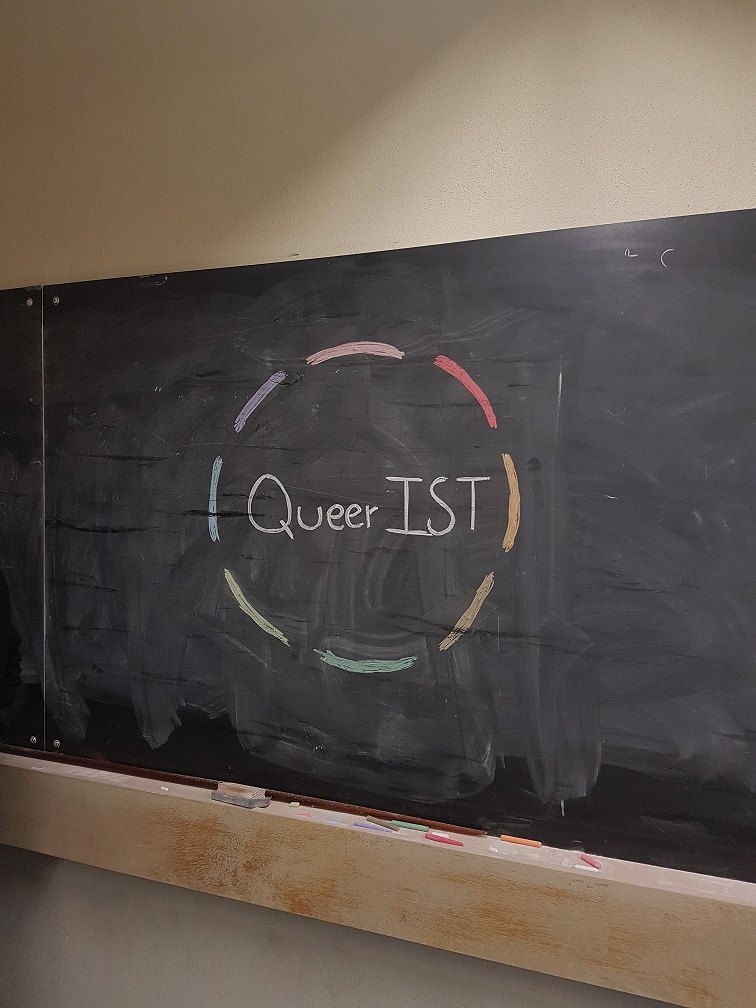 Queer IST